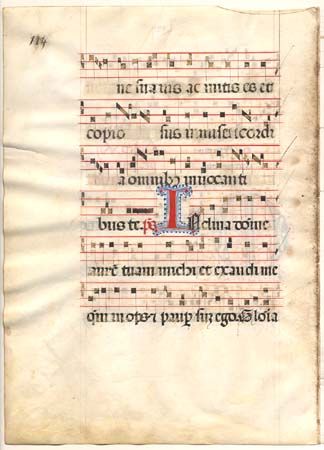 ne suauis ac mitis es et
copio sus misericordi
a omnibꝫ inuocanti
bus te. ps Inclina dñe
aurē tuam michi et exaudi me
qm̄ inops ⁊ paup̄ suꝫ ego Gloria